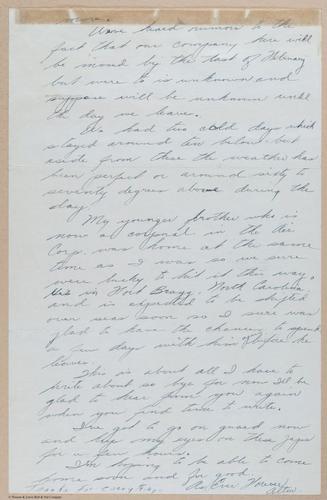 more.
Weve heard rumors to the
fact that our company here will
be moved by the last of Febuary
but were to is unknown and
suppose will be unknown until
the day we leave.
We had two cold days which
stayed around ten below but
aside from these the weather has
been perfect or around sixty to
seventy degrees above during the
day.
My younger brother who is
now a corporal in the Air
Corp. was home at the same
time as I was so we sure
were lucky to hit it this way.
He's in Fort Bragg, North Carolina
and is expected to be shifted
over seas soon so I sure was
glad to have the chance to spend
a few days with him before he
leaves.
This is about all I have to
write about so bye for now I'll be
glad to hear from you again
when you find time to write.
I've got to go on guard now
and keep my eyes on these japs
for a few hours.
I'm hoping to be able to come
home soon and for good.
Thanks for everything. As Ever